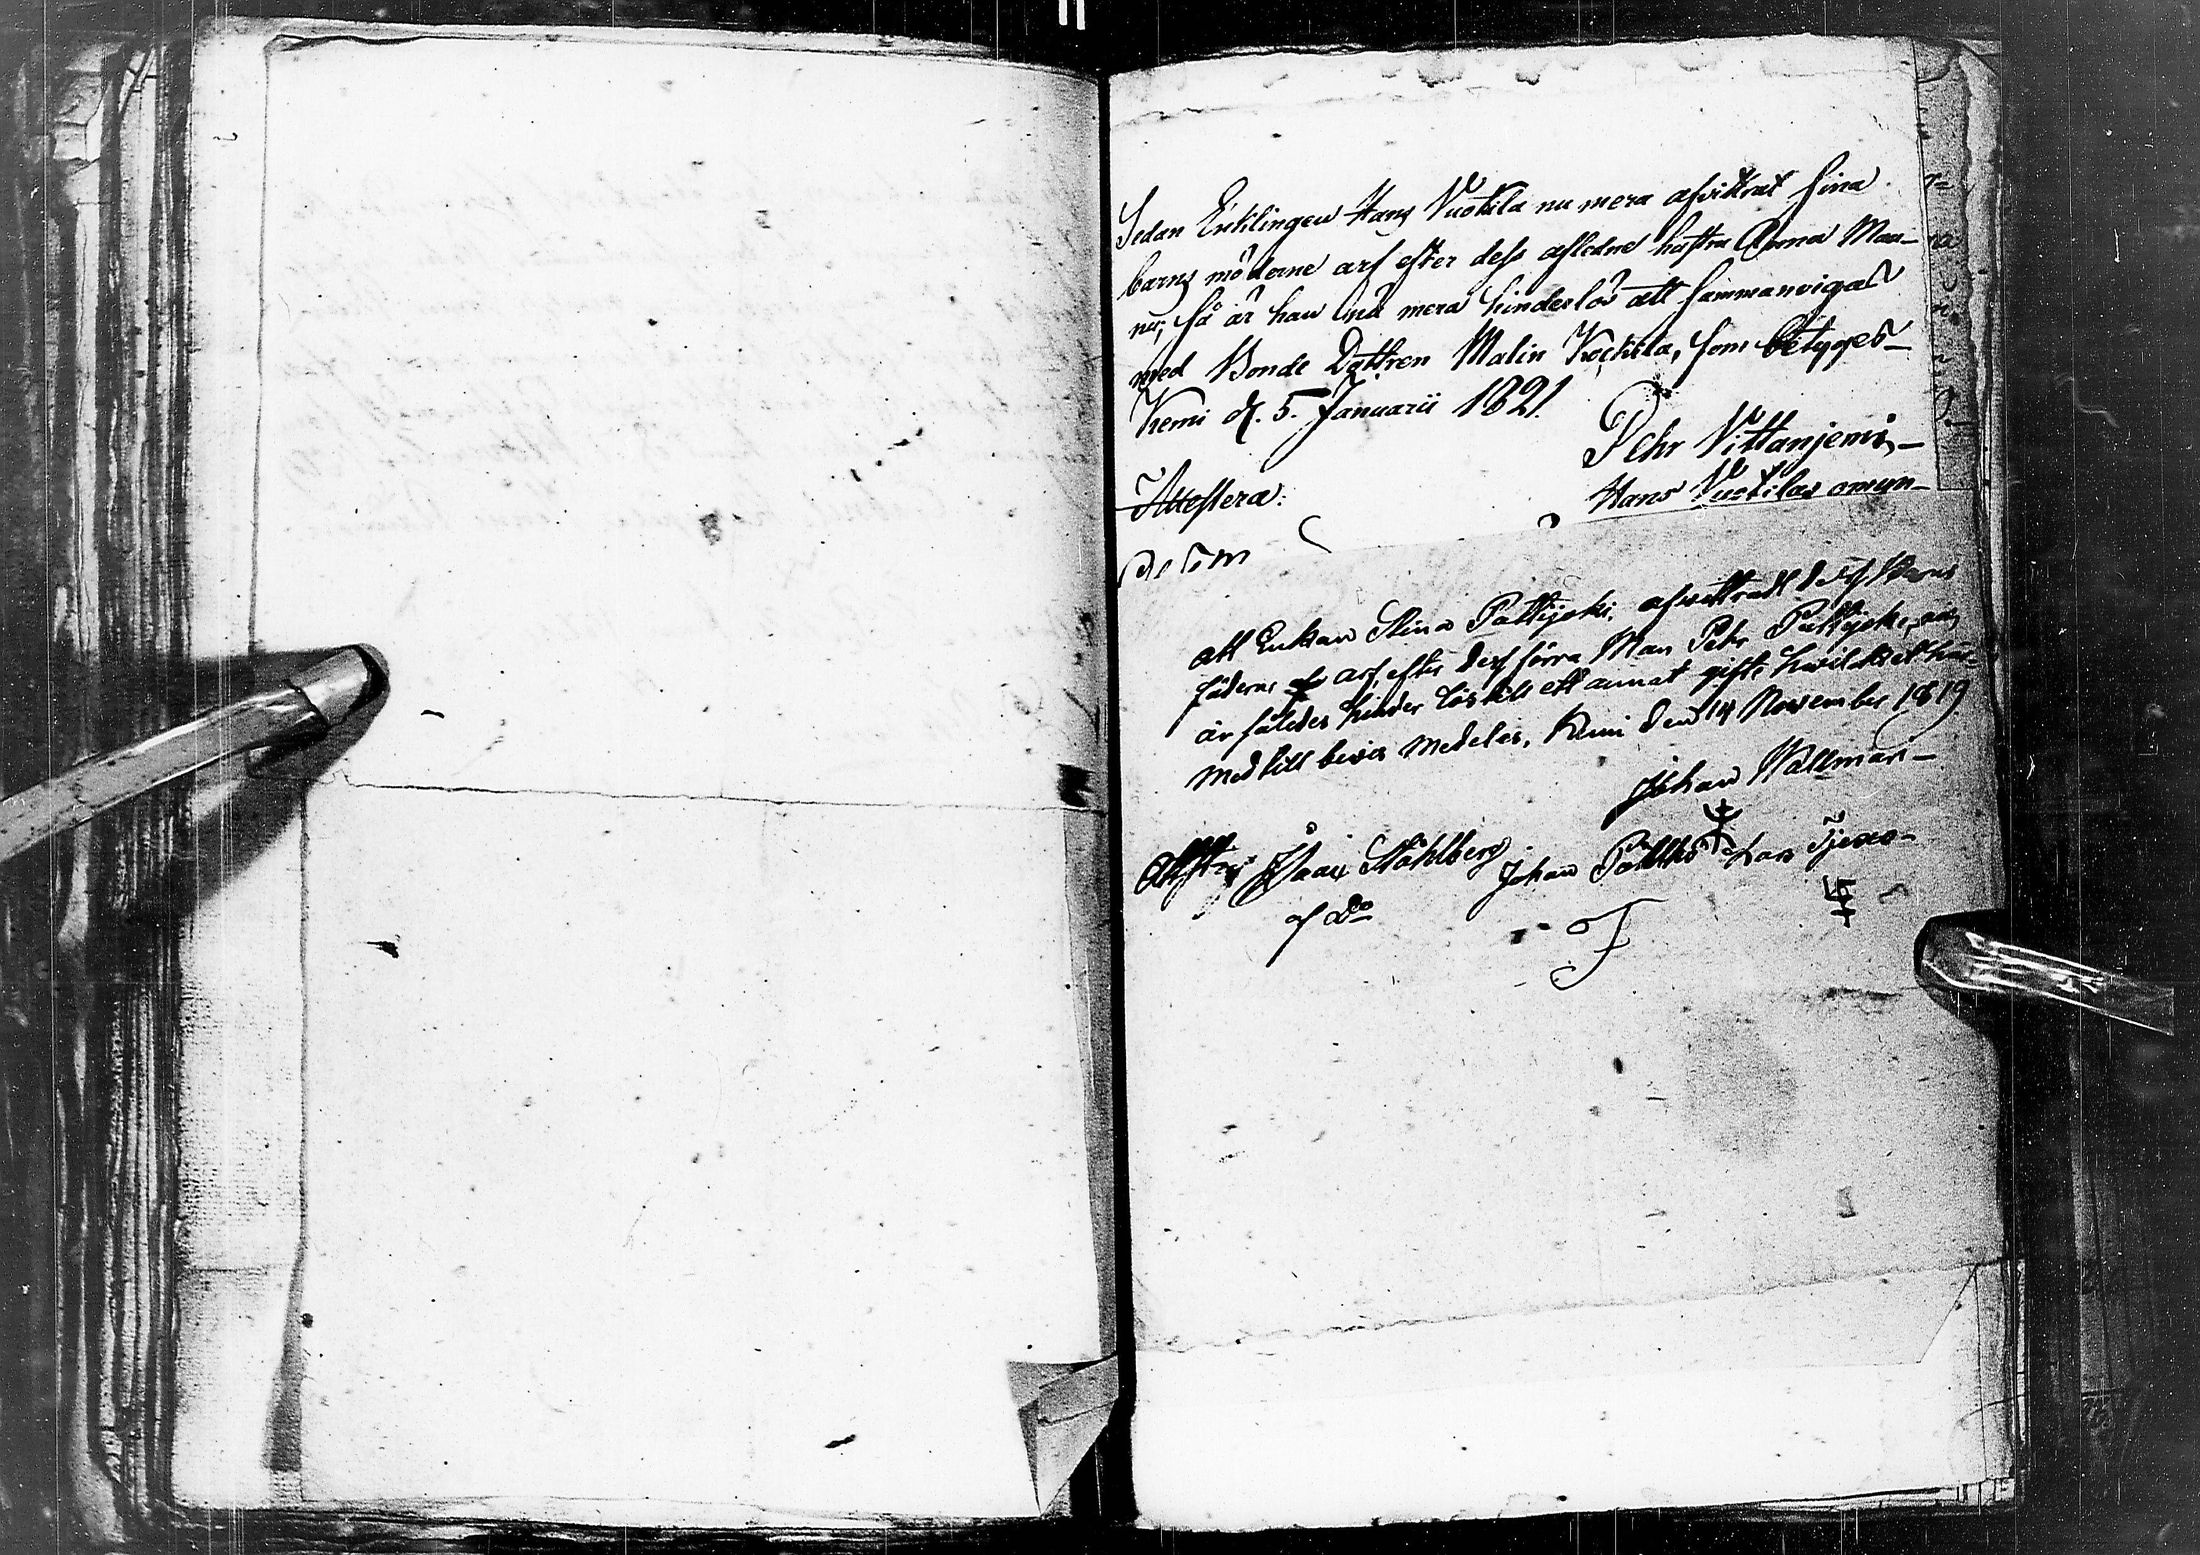 Sedan Enklingen Hans Vuotila nu mera afvittrat sina
barns möderne arf efter dess aflidne hustru Anna Maa-
nu, så är han nu mera hinderlös att sammanvigas
med Bonde Dottren Malin Kockila, som betygas
Kemi d. 5. Januarii 1821.
Pehr Vittanjemi,
Attestera:
Hans Vuotilas omyn-
Att Enkan Stina Pattijoki, afvittradt dess Barns
fäderne arf, efter dess förra Man Pehr Pattijoki, och
är således hinder lös till ett annat gifte hvilcket här-
med till bevis medelas, Kemi den 14 November 1819
Johan Wallman
Attestera Isaac Ståhlberg Johan Pöllkö Lars Tjero
af Do